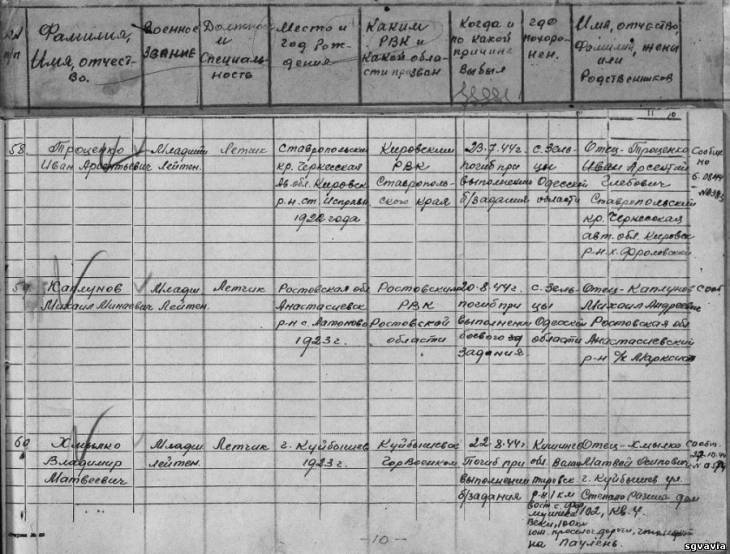 NN п/п
Фамилия, Имя, отчество.
Военное звание
Должность и Специальность
Место и год Рождения
Каким РВК и какой области призван
Когда и по какой причине Выбыл
где похоронен.
Имя, отчество, Фамилия, жены или Родственников
58.
Троценко
Иван Арсентьевич
Младший
Лейтен.
Летчик
Ставропольский
кр. Черкесская
Ав. обл. Кировск
р-н. ст. Исправн
1922 года
Кировским
РВК
Ставрополь-
ского края
23.7.44г.
погиб при
выполнении
б/задания
с. Зель-
цы
Одесской
области
Отец - Троценко
Ставропольский
кр. Черкесская
авт. обл. Кировск
59
Каплунов
Михаил Минаевич
Млади
Лейтен.
Летчик
Ростовская обл
Анастасиевск
1923г.
Ростовским
РВК
Ростовской
области
20.8.44г.
погиб при
выполнени
боевого
задания
с. Зель-
цы
Одесской
области
Отец - Каплунов
Ростовская обл
Анастасиевский
р-н
Сооб
60
Хмылко
Владимир
Матвеевич
Млади
лейтен.
Летчик
г. Куйбышев
1923г.
Куйбышевск
Горвоенком
22.8.44г.
Погиб при
выполнении
б/задания
Отец - Хмылко
Матвей Осипович
г. Куйбышев ул.
Степана Разина дом
102, кв. 4.
Сообщ.
-10-
sgvavia